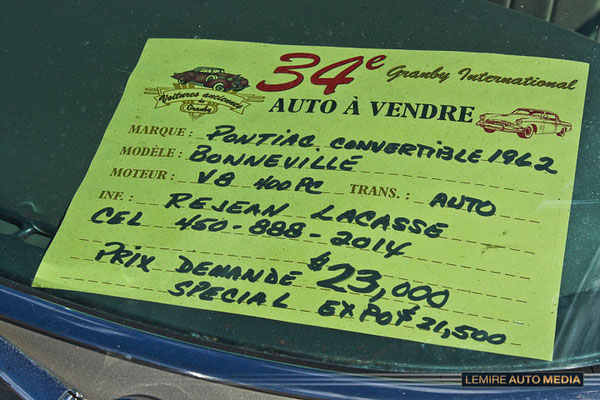 34e Granby International
Voitures anciennes
de Granby
AUTO À VENDRE
MARQUE : PONTIAC CONVERTIBLE 1962
MODÈLE : BONNEVILLE
MOTEUR : V8 400PC TRANS. : AUTO
INF. : REJEAN LACASSE
CEL 450-888-2014
PRIX DEMANDE $23,000
SPECIAL EXPO $21,500
LEMIRE AUTO MEDIA